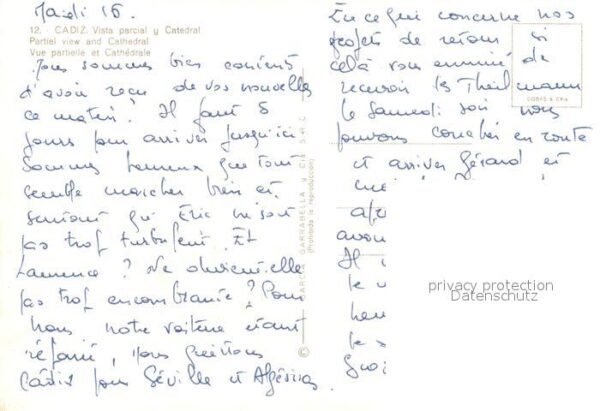 Mardi 16.
12. - CADIZ. Vista parcial y Catedral
Partiel view and Cathedral
Vue partielle et Cathédrale
Nous sommes bien contents
d'avoir reçu de vos nouvelles
ce matin! Il faut 5
jours pour arriver jusqu'ici
Sommes heureux que tout
semble marcher bien et
surtout qu' Eric ne soit
pas trop turbulent. Et
Laurence? Ne devient-elle
pas trop encombrante? Pour
nous notre voiture étant
réparée, nous quittons
Cadix pour Séville et Algésiras
© GARCIA GARRABELLA y Cia
(Prohibida la reproducción)
En ce qui concerne nos
projets de retour si
celà vous ennuie de
recevoir les Theilmann
le Samedi soir nous
pouvons coucher en route
et arriver Gérard et
avon
Il
le
privacy protection
Datenschutz